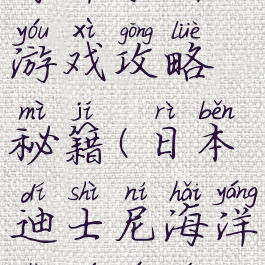 yóu xì gōng lüè
游戏攻略
mì jí rì běn
秘籍(日本
dí shì ní hǎi yáng
迪士尼海洋